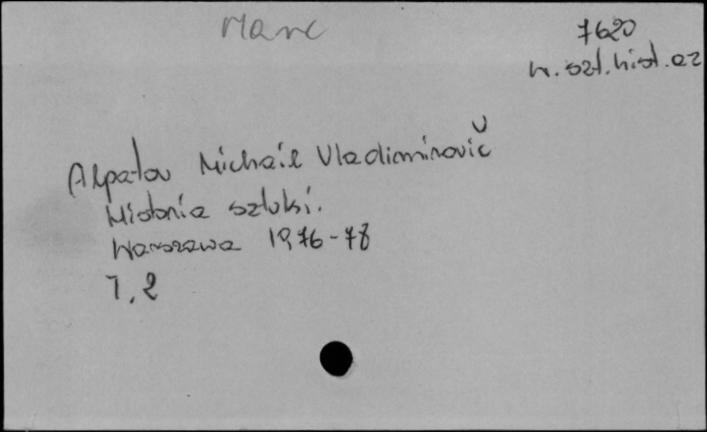 Marc
7620
h. szt. hist. az
Alpatov Michail Vladimirovič
Historia sztuki.
Warszawa 1976-78
T. 2